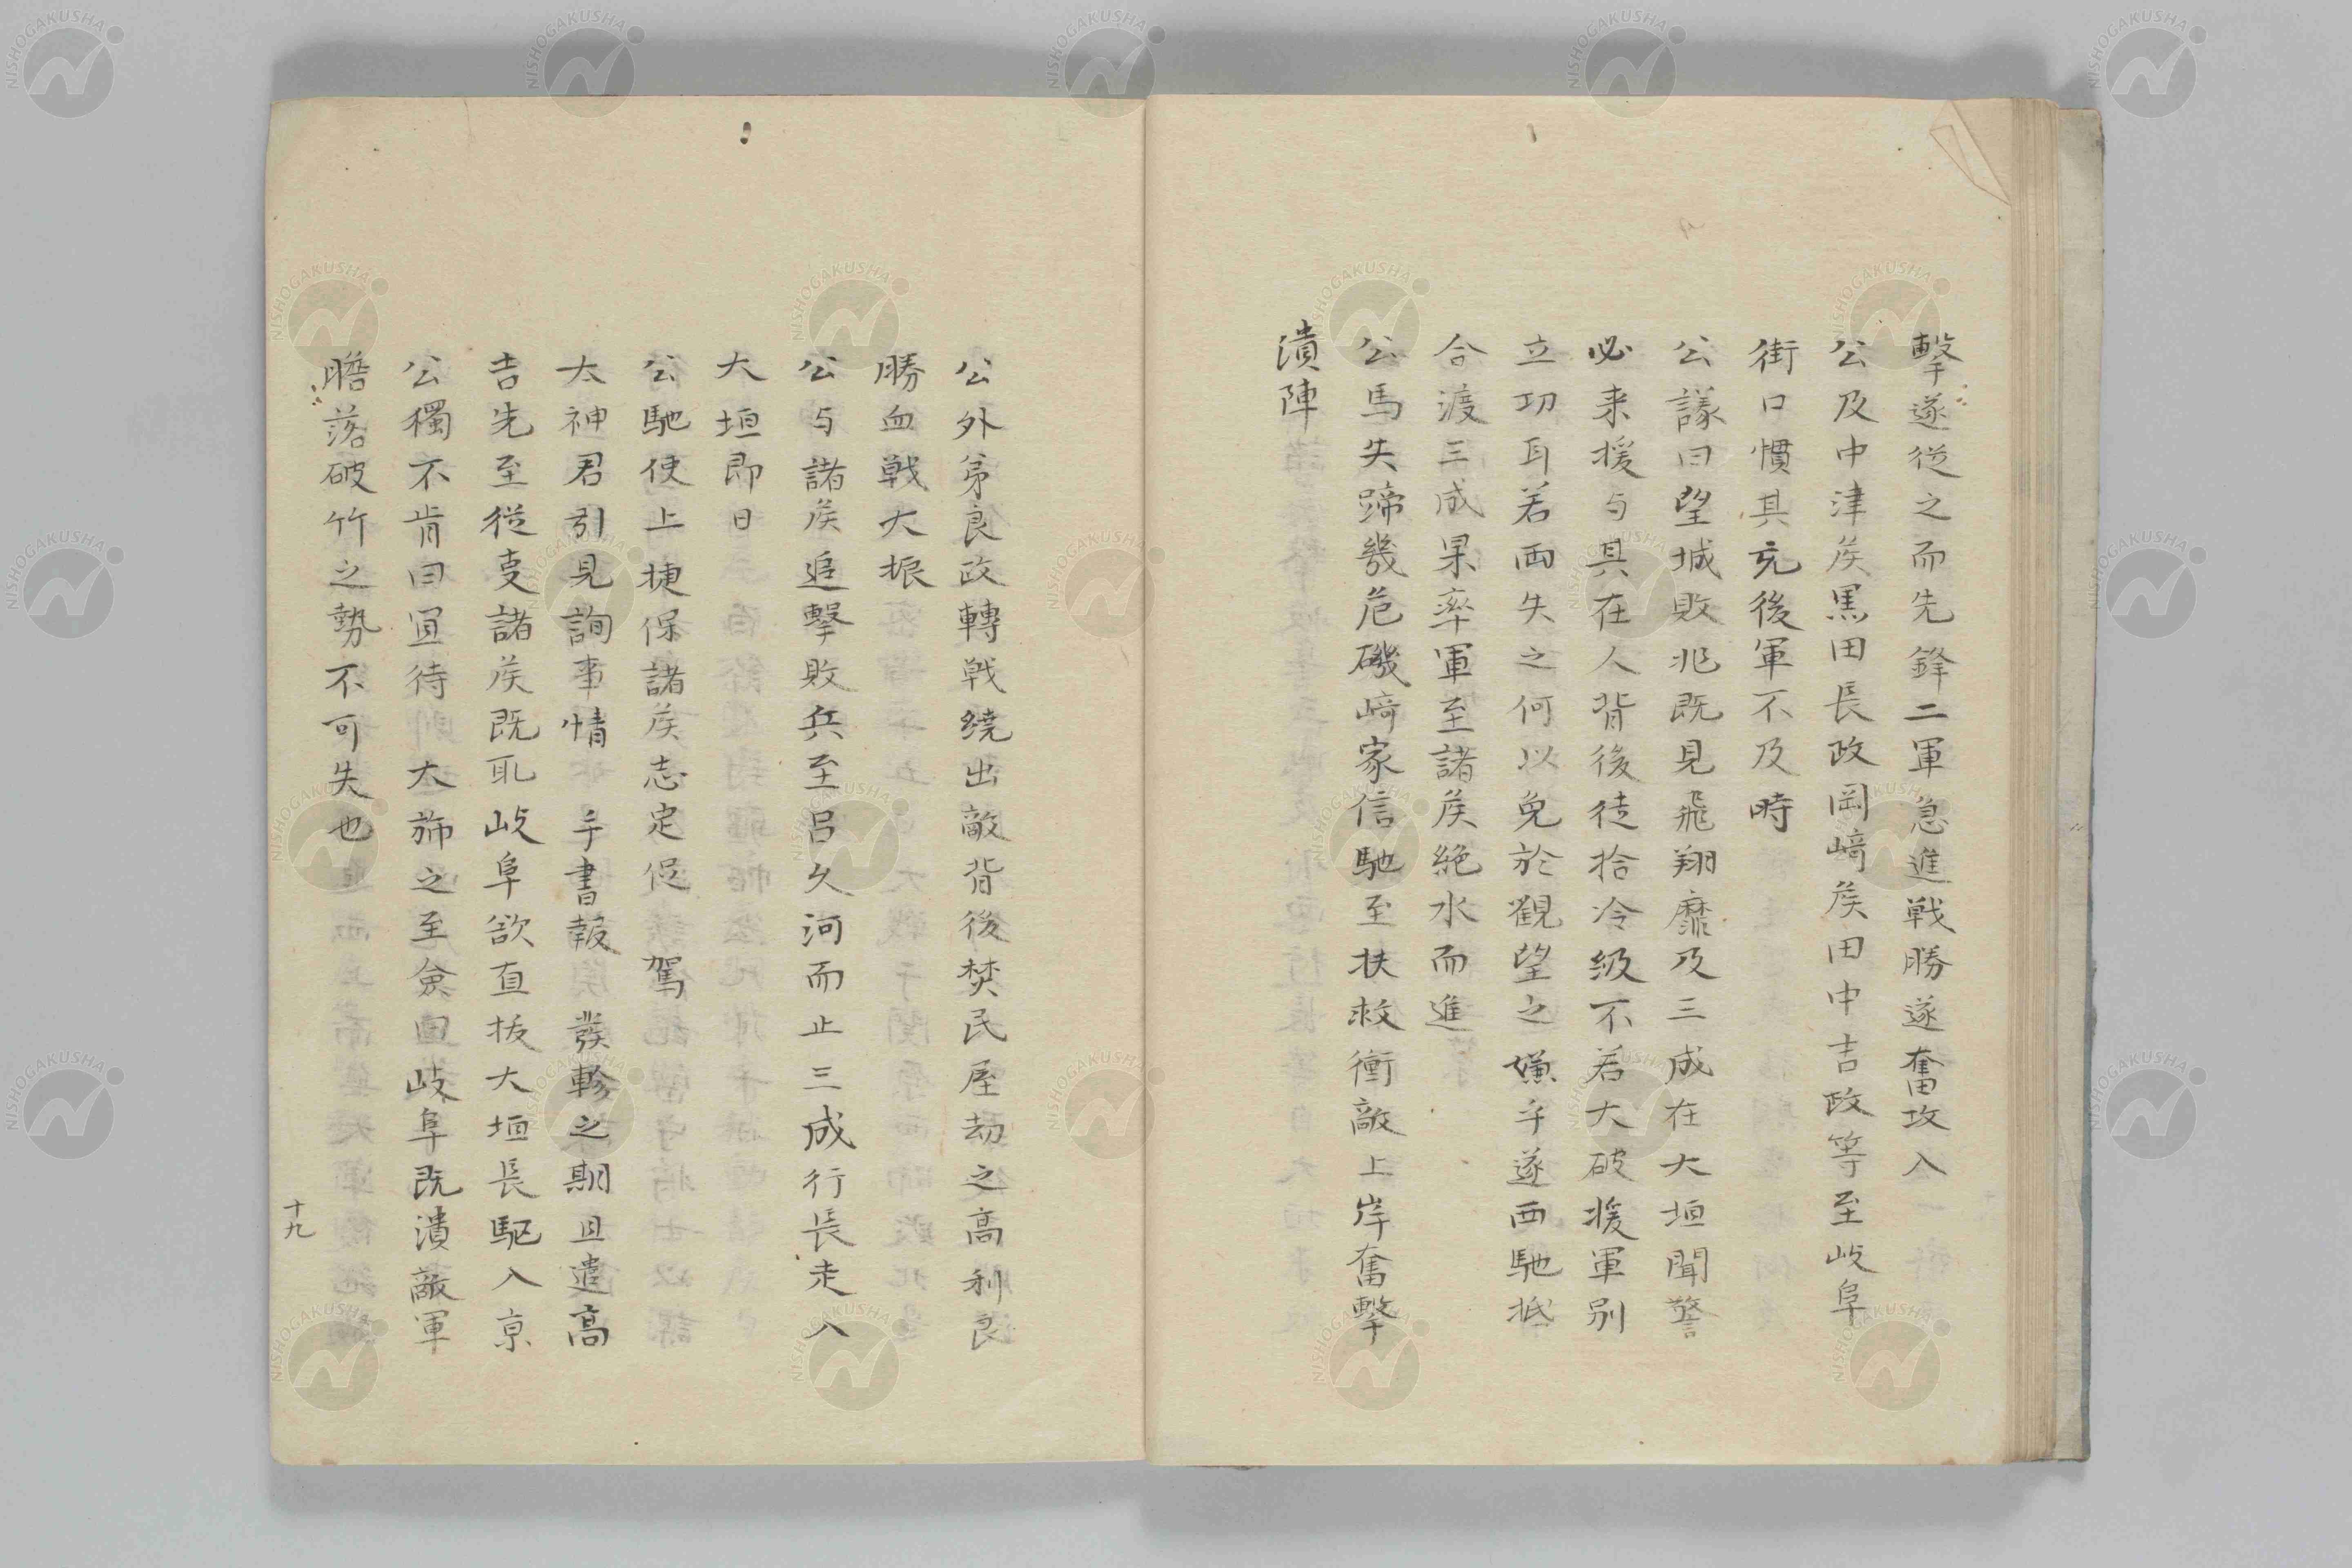 擊遂從之而先鋒二軍急進戦勝遂奮攻入
公及中津矦黒田長政岡﨑矦田中吉政等至岐阜
街口慣其充後軍不及時
公議曰望城敗兆既見飛翔靡及三成在大垣聞警
必来援与其在人背後徒拾冷級不若大破援軍別
立功耳若両失之何以免於觀望之嫌乎遂西馳抵
合渡三成果率軍至諸矦絶水而進
公馬失蹄幾危磯﨑家信馳至扶救衝敵上岸奮擊
潰陣
公外弟良政轉戦繞出敵背後焚民屋劫之高利良
勝血戦大振
公与諸矦追擊敗兵至呂久河而止三成行長走入
大垣即日
公馳使上捷保諸矦志定促駕
太神君引見詢事情手書報發軫之期且遣高
吉先至從叓諸矦既取岐阜欲直抜大垣長駆入京
公獨不肯曰宜待大斾之至僉曰岐阜既潰敵軍
膽落破竹之勢不可失也
十九
NISHOGAKUSHA